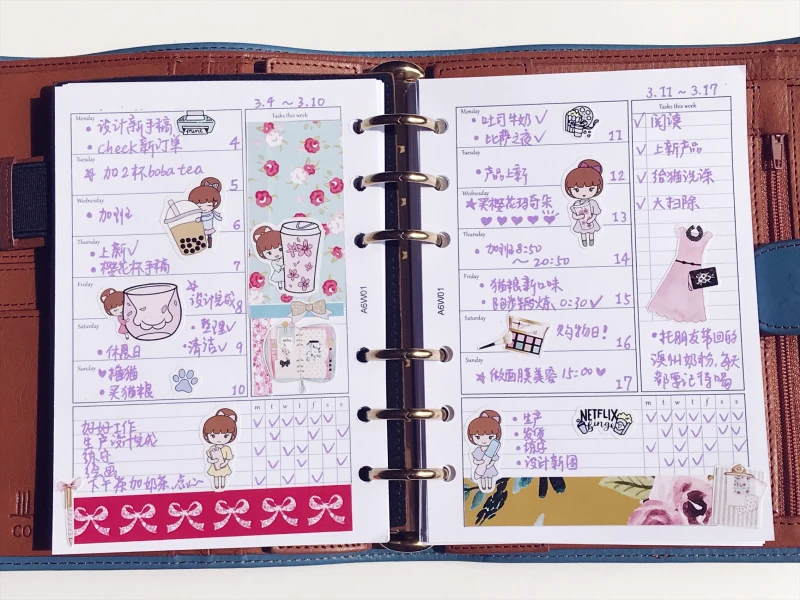 3.4 ~ 3.10
Tasks this week
Monday
• 设计新手稿
• check 新订单
4
Tuesday
加2杯boba tea
5
Wednesday
• 加班
6
Thursday
• 上新✓
• 樱花杯手稿
7
Friday
设计完成
8
Saturday
• 整理✓
• 休息日
• 清洁✓
9
Sunday
♥ 撸猫
• 买猫粮
10
m t w t f s s
好好工作
生产设计完成
绘画
下午茶加奶茶、点心
A6W01
A6W01
3.11 ~ 3.17
Tasks this week
Monday
• 吐司牛奶✓
• 比赛之夜✓
11
Tuesday
• 产品上新
12
Wednesday
★买樱花玛奇朵
13
Thursday
• 加班8:50
~ 20:50
14
Friday
• 猫粮新口味
0:30✓
15
Saturday
购物日!
16
Sunday
★做面膜美容 15:00 ♥
17
✓ 阅读
✓ 上新产品
✓ 给猫洗澡
✓ 大扫除
• 托朋友带回的
澳州奶粉,每天
都要记得喝
m t w t f s s
• 生产
• 发货
• 设计新图
NETFLIX
binge
CO